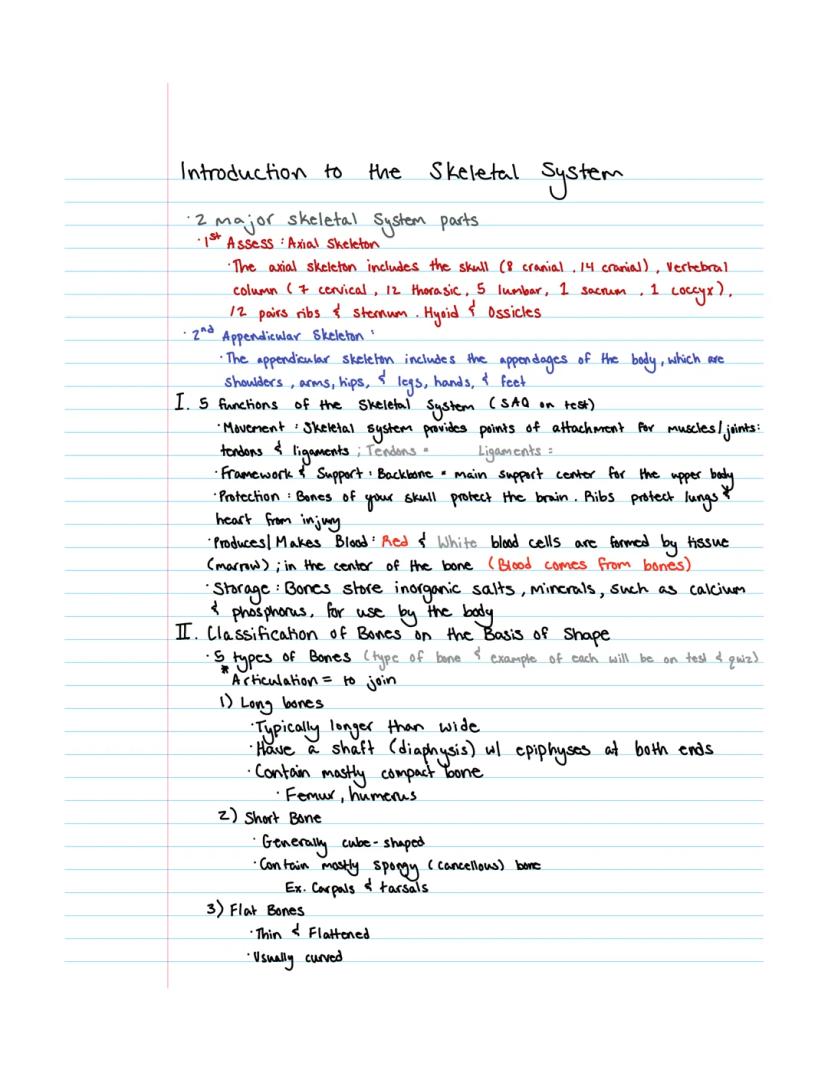 Introduction to the Skeletal System
· 2 major skeletal System parts
· 1st Assess : Axial Skeleton
· The axial skeleton includes the skull (8 cranial , 14 cranial) , Vertebral
column ( 7 cervical , 12 thorasic , 5 lumbar, 1 sacrum , 1 coccyx),
12 pairs ribs & sternum . Hyoid & Ossicles
· 2nd Appendicular Skeleton :
· The appendicular skeleton includes the appendages of the body, which are
shoulders , arms, hips, & legs, hands, & feet
I. 5 functions of the Skeletal System (SAQ on test)
· Movement : Skeletal system provides points of attachment for muscles/joints:
tendons & ligaments ; Tendons = Ligaments =
· Framework & Support : Backbone = main support center for the upper body
· Protection : Bones of your skull protect the brain. Ribs protect lungs &
heart from injury
· Produces/ Makes Blood : Red & White blood cells are formed by tissue
(marrow) ; in the center of the bone (Blood comes from bones)
· Storage : Bones store inorganic salts, minerals, such as calcium
& phosphorus, for use by the body
II. Classification of Bones on the Basis of Shape
· 5 types of Bones (type of bone & example of each will be on test & quiz)
* Articulation = to join
1) Long bones
· Typically longer than wide
· Have a shaft (diaphysis) w/ epiphyses at both ends
· Contain mostly compact bone
· Femur, humerus
2) Short Bone
· Generally cube-shaped
· Contain mostly spongy (cancellous) bone
Ex. Carpals & tarsals
3) Flat Bones
· Thin & Flattened
· Usually curved